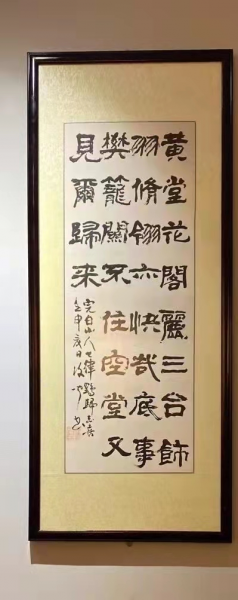 黄堂花閣麗三台飾
羽脩翎亦快哉底事
樊籠關不住空堂又
見爾歸来
完白山人七律鶴歸志喜
壬申夏日
書